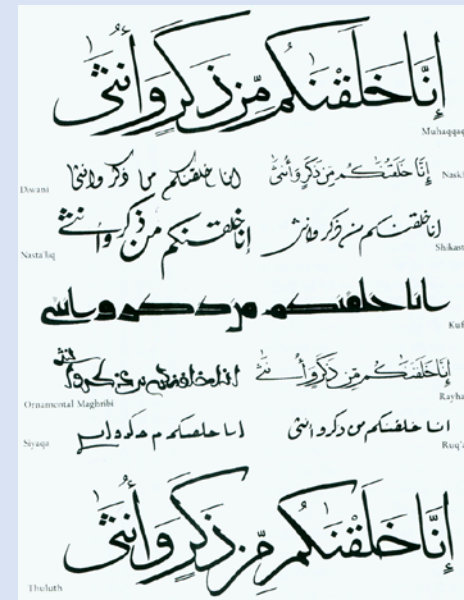 إِنَّا خَلَقْنَٰكُم مِّن ذَكَرٍ وَأُنثَىٰ
Muhaqqaq
إِنَّا خَلَقْنَٰكُم مِن ذَكَرٍ وَأُنثَىٰ
Naskh
انا خلقنكم من ذكر وانثى
Diwani
انا خلقنكم من ذكر وانثى
Shikast
إنا خلقنكم من ذكر وأنثى
Nasta'liq
انا خلقنكم من ذكر وانثى
Kuf
إِنَّا خَلَقْنَٰكُم مِّن ذَكَرٍ وَأُنثَىٰ
Rayha
انا خلقنكم من ذكر وأنثى
Ornamental Maghribi
انا خلقنكم من ذكر وانثى
Ruq'a
Siyaqa
إِنَّا خَلَقْنَٰكُم مِّن ذَكَرٍ وَأُنثَىٰ
Thuluth